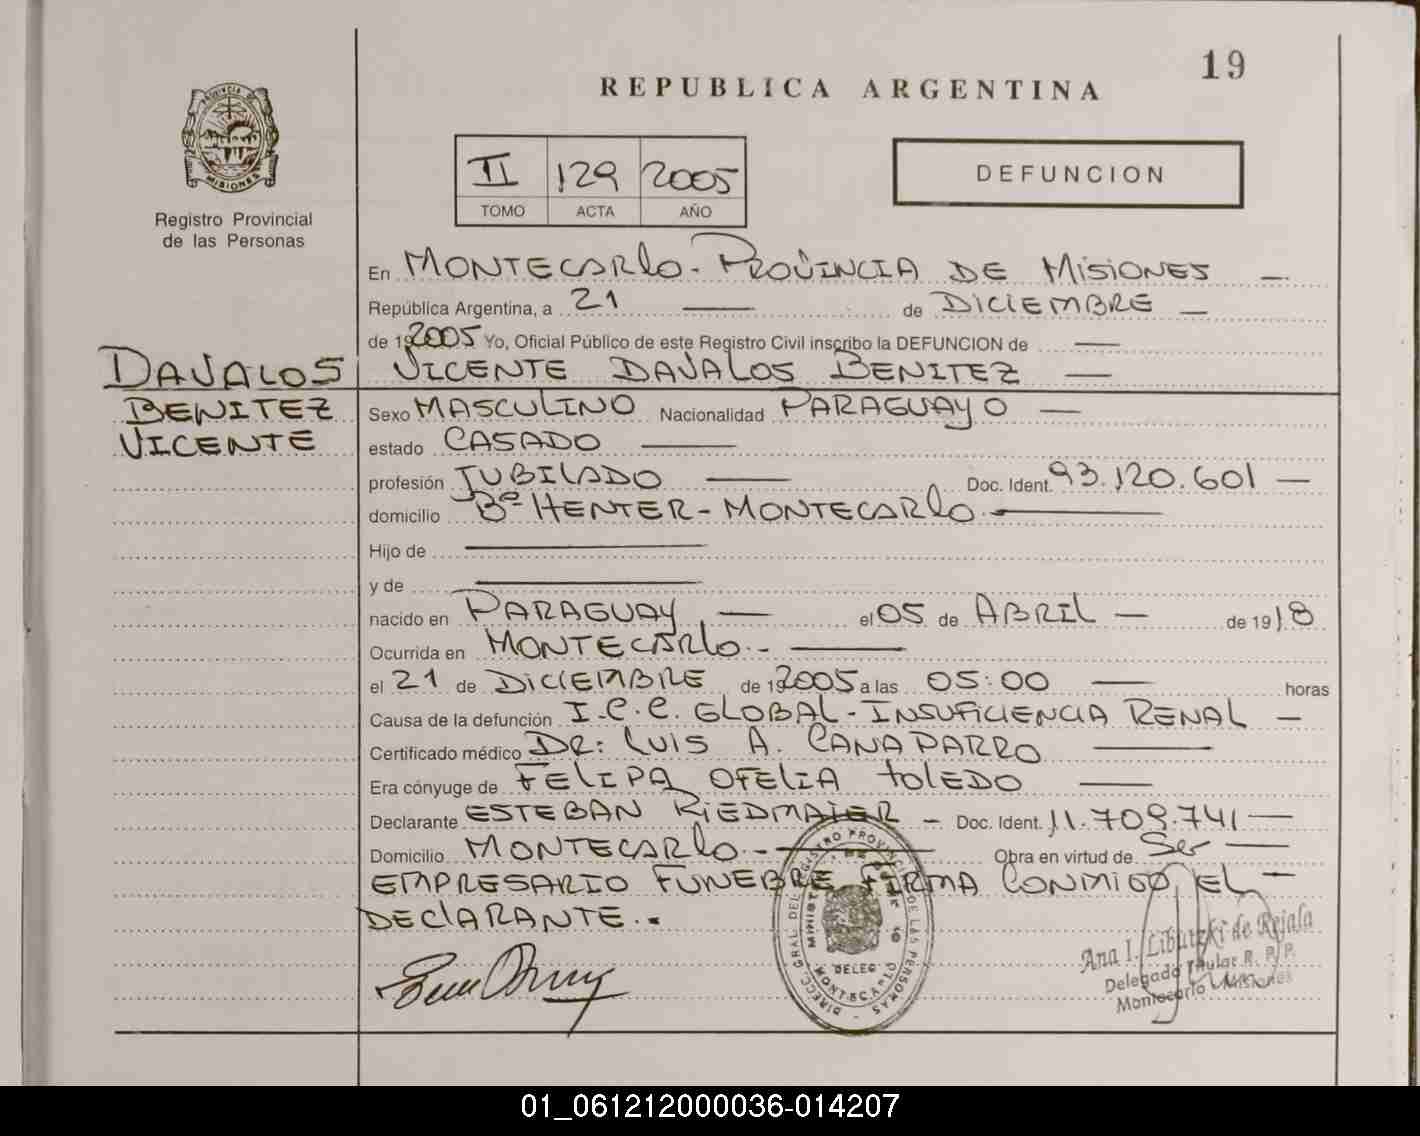 19
REPUBLICA ARGENTINA
PROVINCIA DE
MISIONES
Registro Provincial
de las Personas
II 129 2005
TOMO ACTA AÑO
DEFUNCION
En MONTECARLO - PROVINCIA DE MISIONES —
República Argentina, a 21 — de DICIEMBRE —
de 2005 Yo, Oficial Público de este Registro Civil inscribo la DEFUNCION de —
VICENTE DAVALOS BENITEZ —
DAVALOS
BENITEZ
VICENTE
Sexo MASCULINO Nacionalidad PARAGUAYO —
estado CASADO —
profesión JUBILADO — Doc. Ident. 93.120.601 —
domicilio Bº HENTER - MONTECARLO. —
Hijo de —
y de —
nacido en PARAGUAY — el 05 de ABRIL — de 1918
Ocurrida en MONTECARLO.- —
el 21 de DICIEMBRE de 2005 a las 05:00 — horas
Causa de la defunción I.C.C. GLOBAL - INSUFICIENCIA RENAL —
Certificado médico DR: LUIS A. CANAPARRO —
Era cónyuge de FELIPA OFELIA TOLEDO —
Declarante ESTEBAN RIEDMAIER — Doc. Ident. 11.709.741 —
Domicilio MONTECARLO.- — Obra en virtud de Ser —
EMPRESARIO FUNEBRE FIRMA CONMIGO EL —
DECLARANTE.-
DIRECC. GRAL. DEL REGISTRO PROVINCIAL DE LAS PERSONAS
DELEG
MONTECARLO
Ana I. Libutzki de Rejala
Delegado Titular R. P. P.
Montecarlo Misiones
01_061212000036-014207